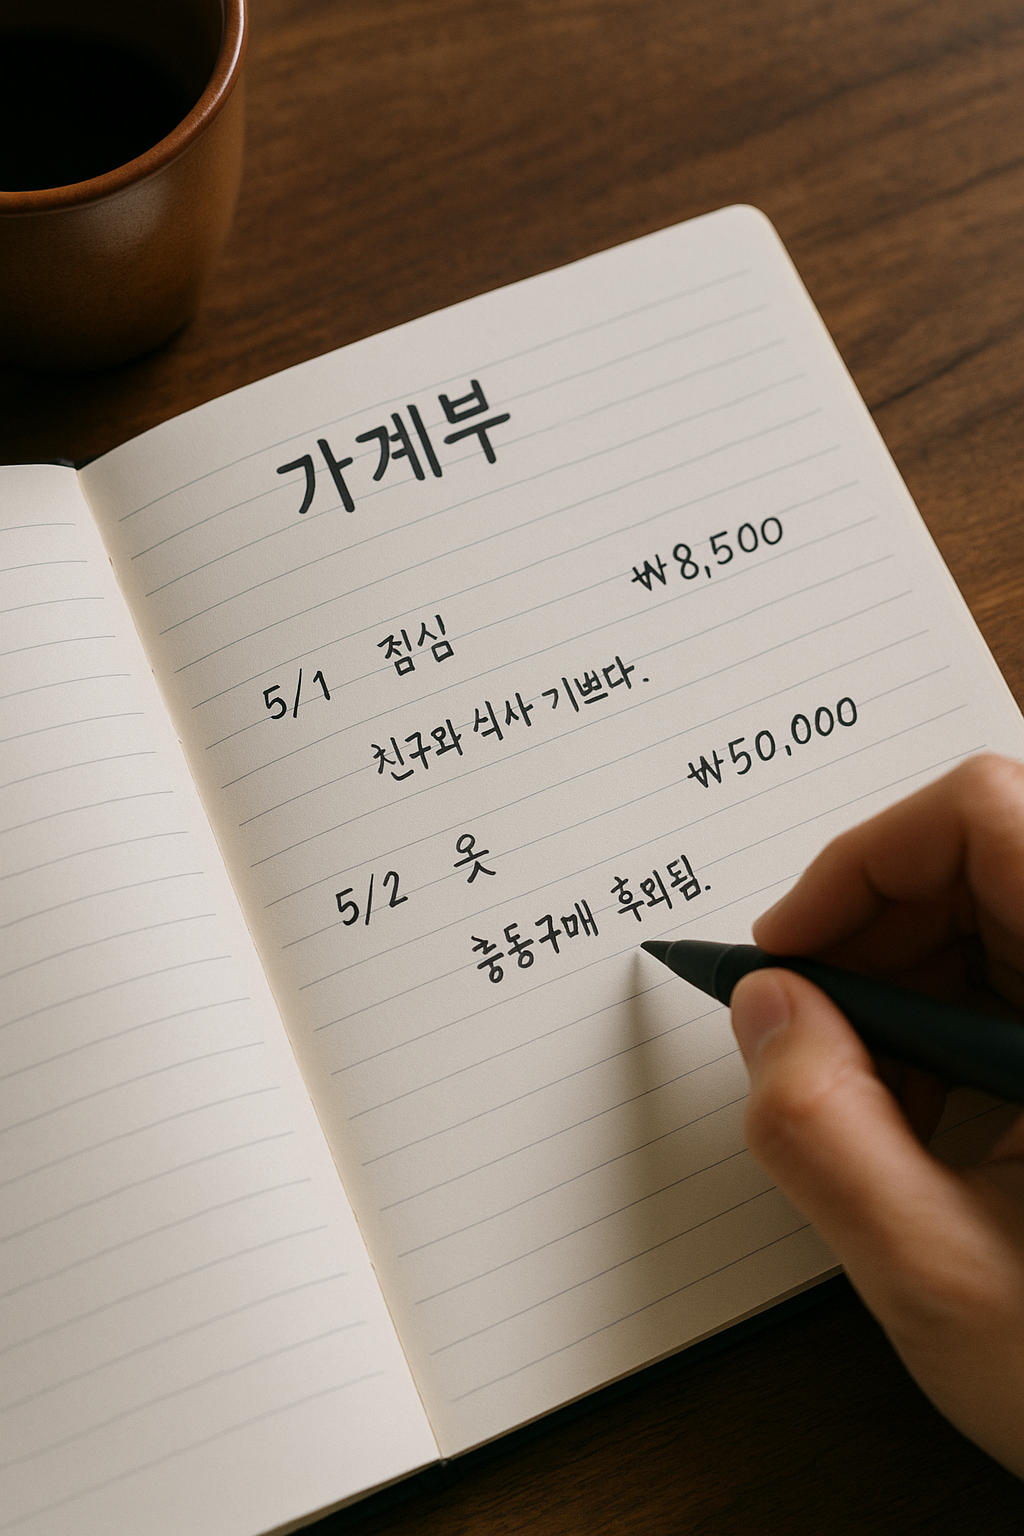 가계부
5/1 점심 ₩8,500
친구와 식사 기쁘다.
5/2 옷 ₩50,000
충동구매 후회됨.